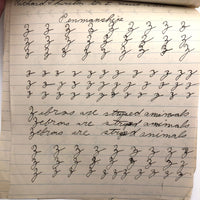 Penmanship
z z z z z z z z z
z z z z z z z z z
z z z z z z z z z
z z z z z z z z z z z z
z z z z z z z z z z z z
Zebras are striped animals
Zebras are striped animals
Zebras are striped animals
z z z z z z z z z
z z z z z z z z z
z z z z z z z z z